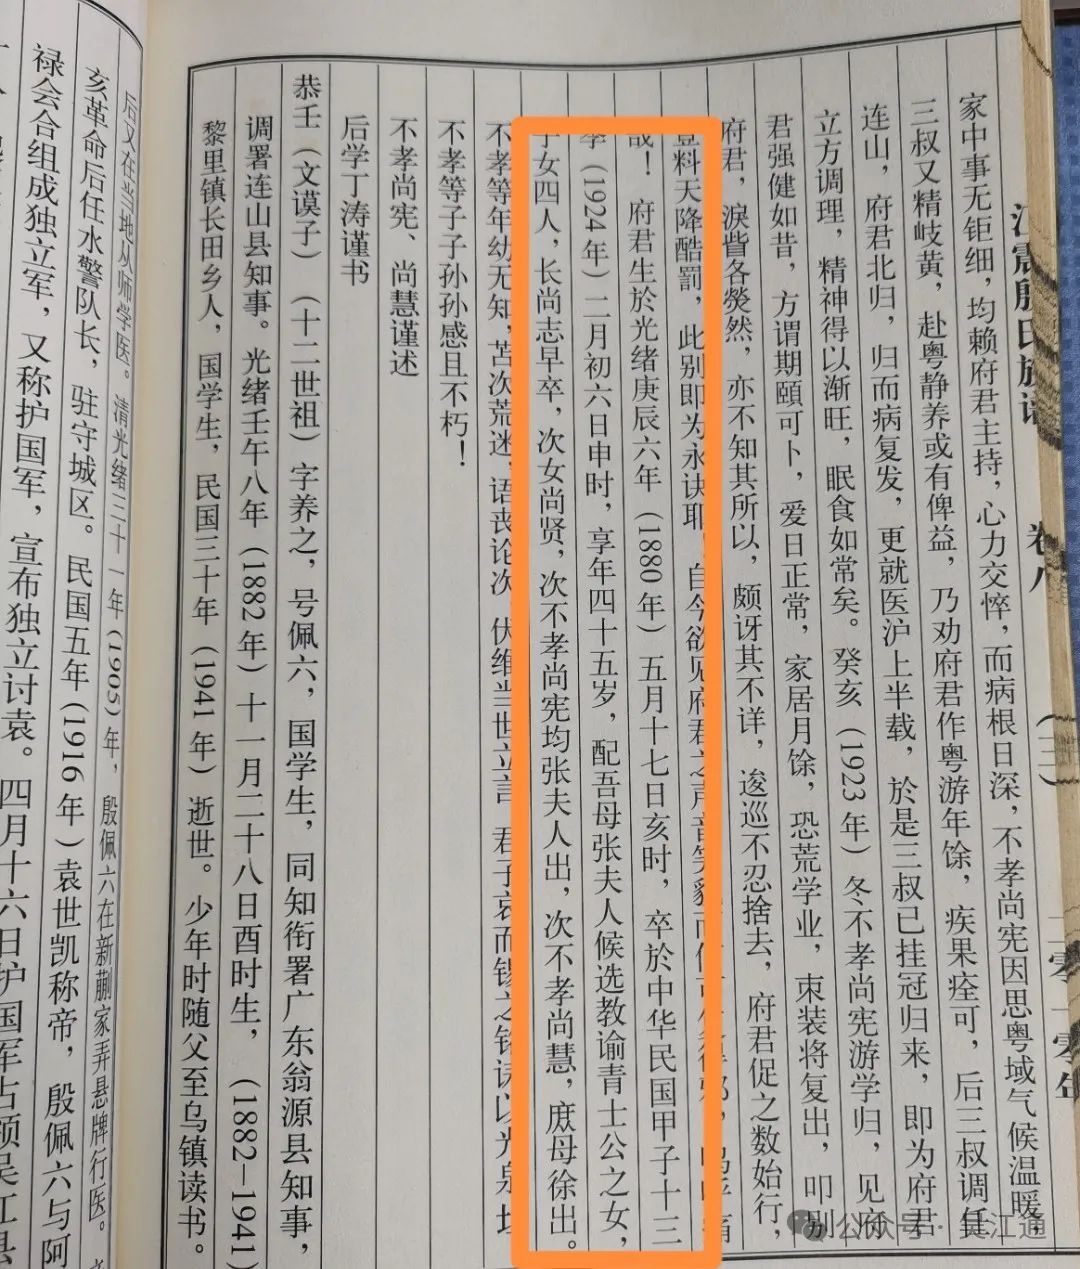 江震殷氏族谱 卷八 （三） 二零一零年
家中事无钜细，均赖府君主持，心力交悴，而病根日深，不孝尚宪因思粤域气候温暖，
三叔又精岐黄，赴粤静养或有俾益，乃劝府君作粤游年馀，疾果痊可，后三叔调任
连山，府君北归，归而病复发，更就医沪上半载，於是三叔已挂冠归来，即为府君
立方调理，精神得以渐旺，眠食如常矣。癸亥（1923年）冬不孝尚宪游学归，见府
君强健如昔，方谓期頤可卜，爱日正常，家居月馀，恐荒学业，束装将复出，叩别
府君，淚眥各熒然，亦不知其所以，颇讶其不详，逡巡不忍捨去，府君促之数始行，
岂料天降酷罚，此别即为永诀耶！自今欲见府君之声音笑貌而
哉！府君生於光绪庚辰六年（1880年）五月十七日亥时，卒於中华民国甲子十三
年（1924年）二月初六日申时，享年四十五岁，配吾母张夫人候选教谕青士公之女，
子女四人，长尚志早卒，次女尚贤，次不孝尚宪均张夫人出，次不孝尚慧，庶母徐出。
不孝等年幼无知，苫次荒迷，语丧论次 伏维当世立言 君子哀而锡之铭诔以光泉壤
不孝等子子孙孙感且不朽！
不孝尚宪、尚慧谨述
后学丁涛谨书
恭壬（文谟子）（十二世祖）字养之，号佩六，国学生，同知衔署广东翁源县知事，
调署连山县知事。光绪壬午八年（1882年）十一月二十八日酉时生，（1882—1941）
黎里镇长田乡人，国学生，民国三十年（1941年）逝世。少年时随父至乌镇读书。
后又在当地从师学医。清光绪三十一年（1905）年，殷佩六在新蒯家弄悬牌行医。
亥革命后任水警队长，驻守城区。民国五年（1916年）袁世凯称帝，殷佩六与阿
禄会合组成独立军，又称护国军，宣布独立讨袁。四月十六日护国军占领吴江县
公众号·吴江通